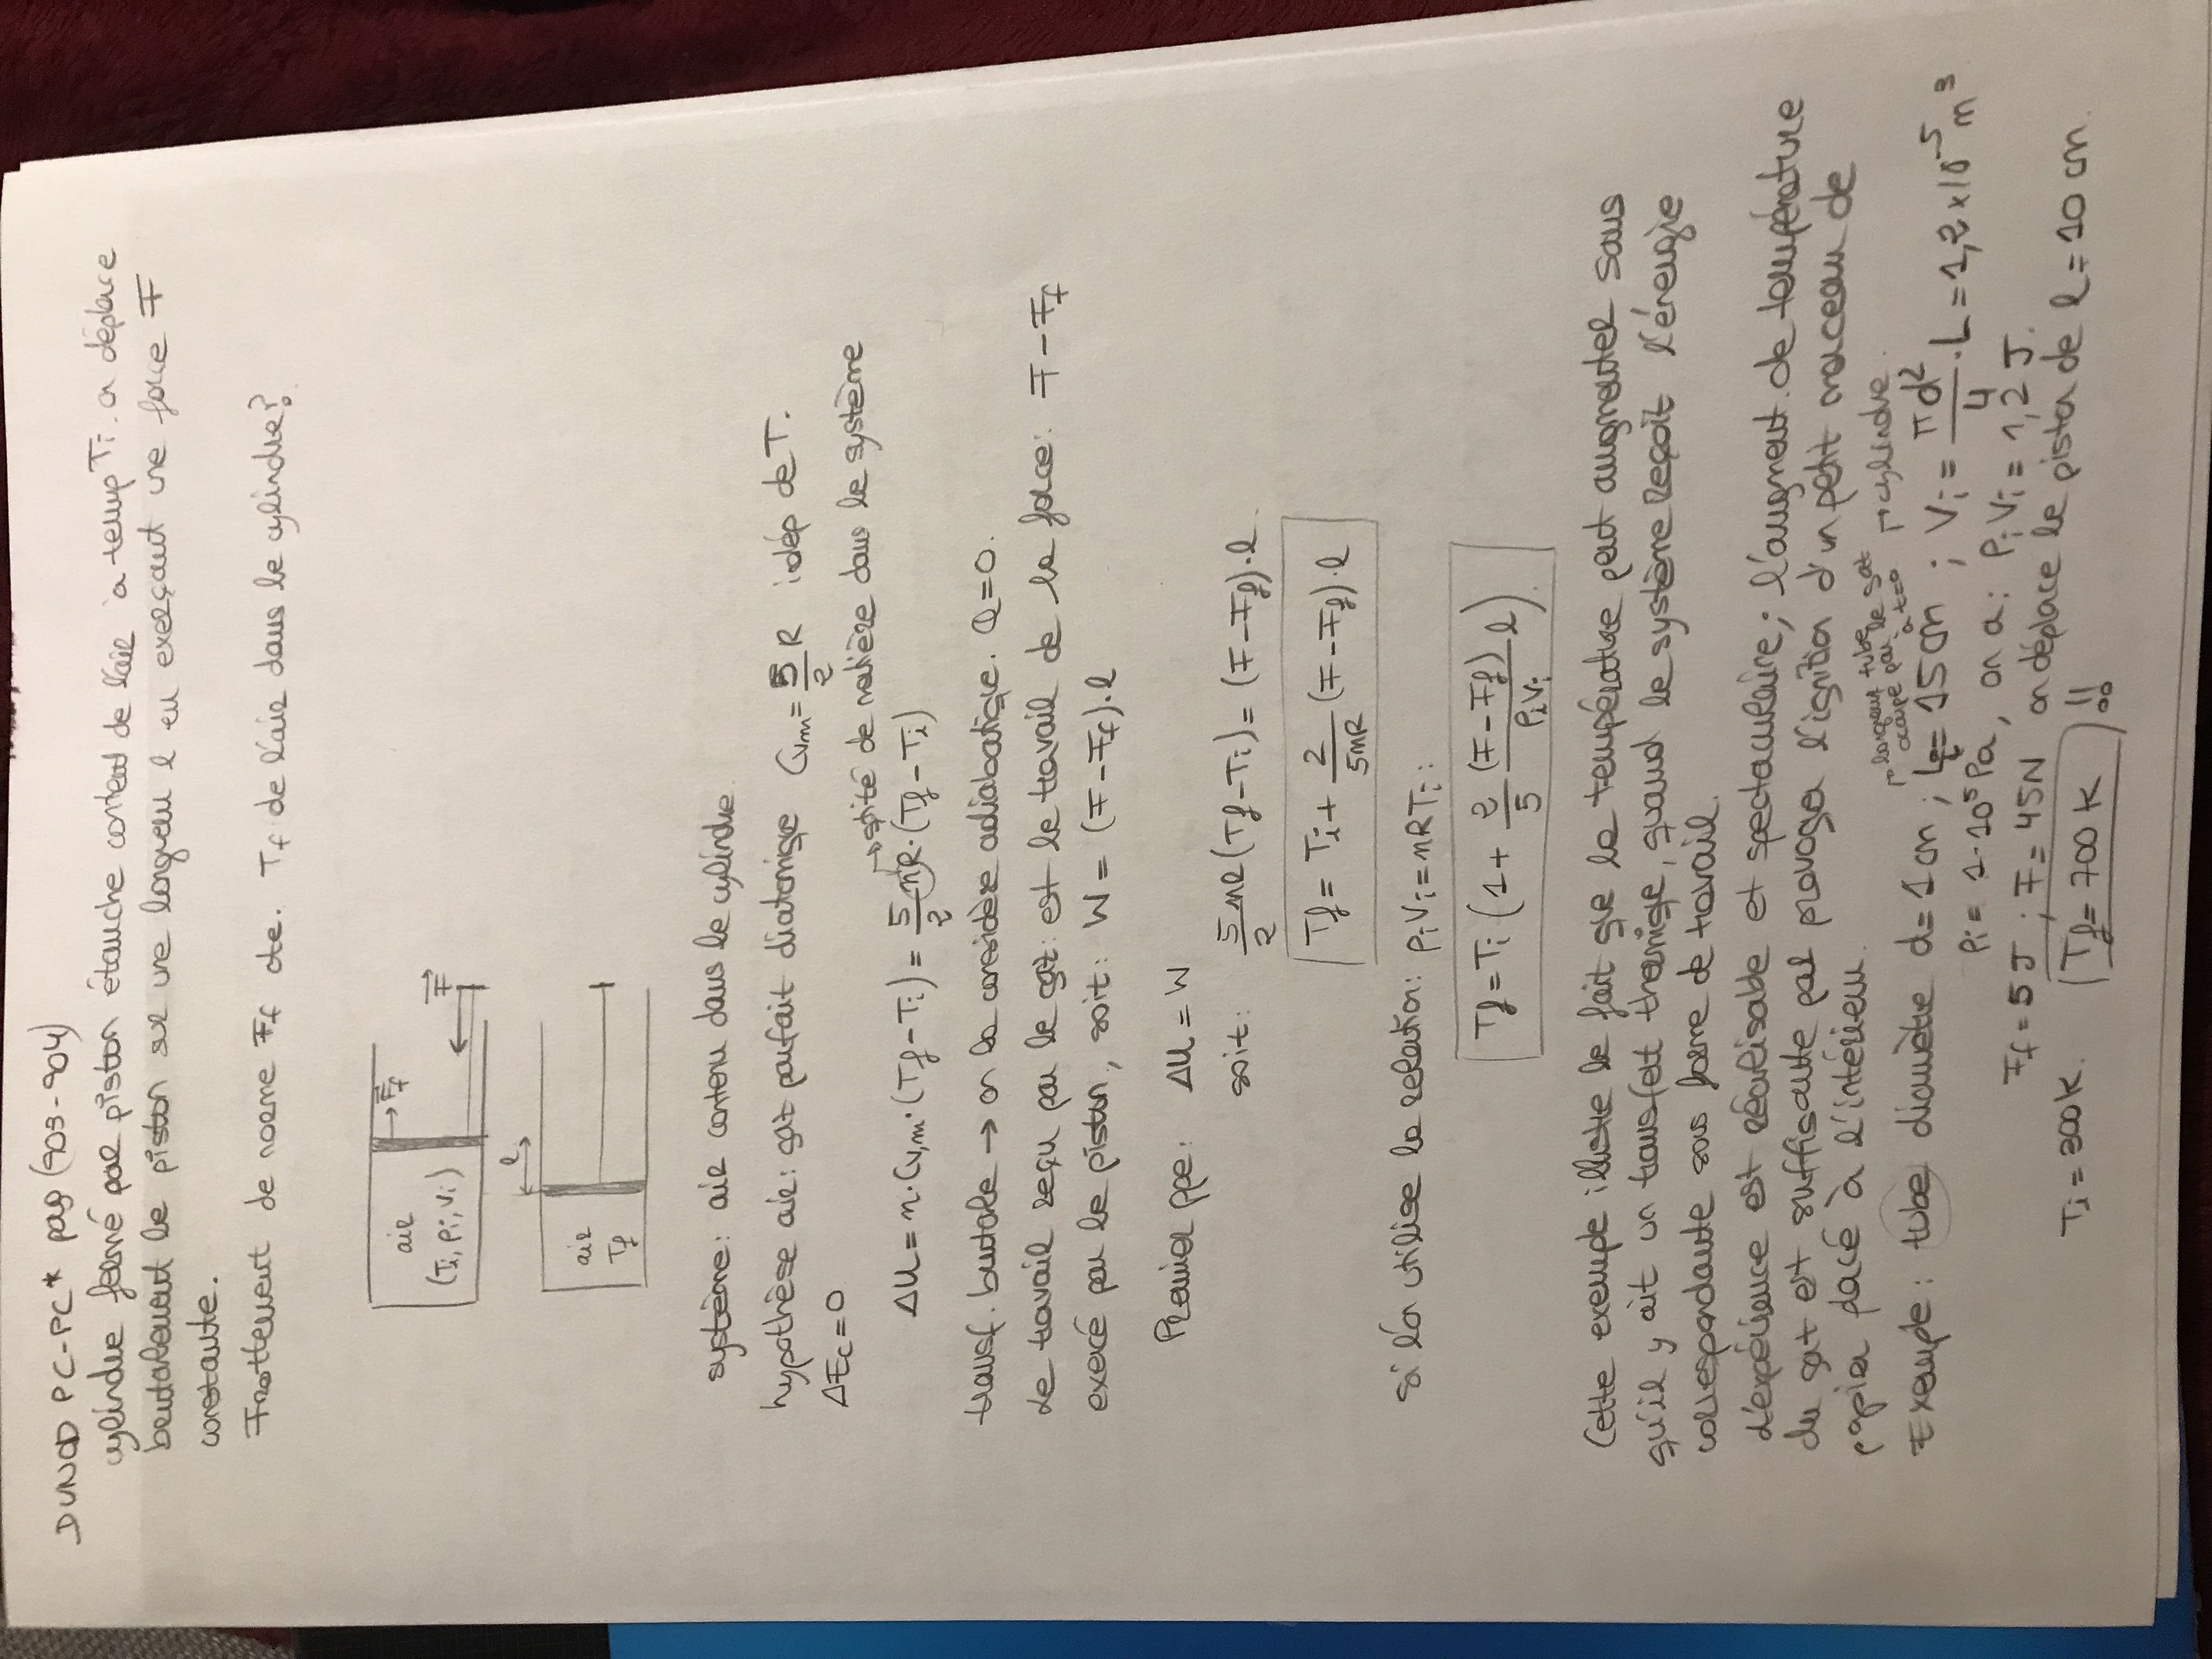 DUNOD PC-PC* pag (903-904)
cylindre fermé par piston étauche content de l'air à temp Ti. on déplace
brutalement le piston sur une longueur l en exerçant une force F
constante.
Frottement de norme Ff cte. Tf de l'air dans le cylindre?
air
(Ti, pi, Vi)
Ff
F
l
air
Tf
système: air contenu dans le cylindre
hypothèse air: gaz parfait diatomique Cvm = 5/2 R idép de T.
ΔEc = 0
→ qtité de matière dans le système
ΔU = n·Cv,m·(Tf-Ti) = 5/2 nR·(Tf-Ti)
transf. brutale → on la considère adiabatique. Q=0.
Le travail reçu par le gaz: est le travail de la force: F-Ff
exercé par le piston, soit: W = (F-Ff)·l
Premier ppe: ΔU = W
soit: 5/2 nR(Tf-Ti) = (F-Ff)·l
Tf = Ti + 2/5nR (F-Ff)·l
si l'on utilise la relation: piVi = nRTi:
Tf = Ti (1 + 2/5 (F-Ff)/PiVi l).
Cette exemple illustre le fait que la température peut augmenter sans
qu'il y ait un transfert thermique, quand le système reçoit l'énergie
correspondante sous forme de travail.
L'expérience est réalisable et spectaculaire; l'augment. de température
du gaz est suffisante par provoquer l'ignition d'un petit morceau de
papier placé à l'intérieur.
→ longueur tube occupé par le gaz à t=0 → cylindre.
Exemple: tube diamètre d=1cm ; Li=15cm ; Vi = πd²/4 · L = 1,2×10⁻⁵ m³
pi = 1·10⁵ Pa, on a: PiVi = 1,2 J.
Ff = 5 J ; F = 45N on déplace le piston de l = 10 cm.
Ti = 300K. Tf = 700 K !!